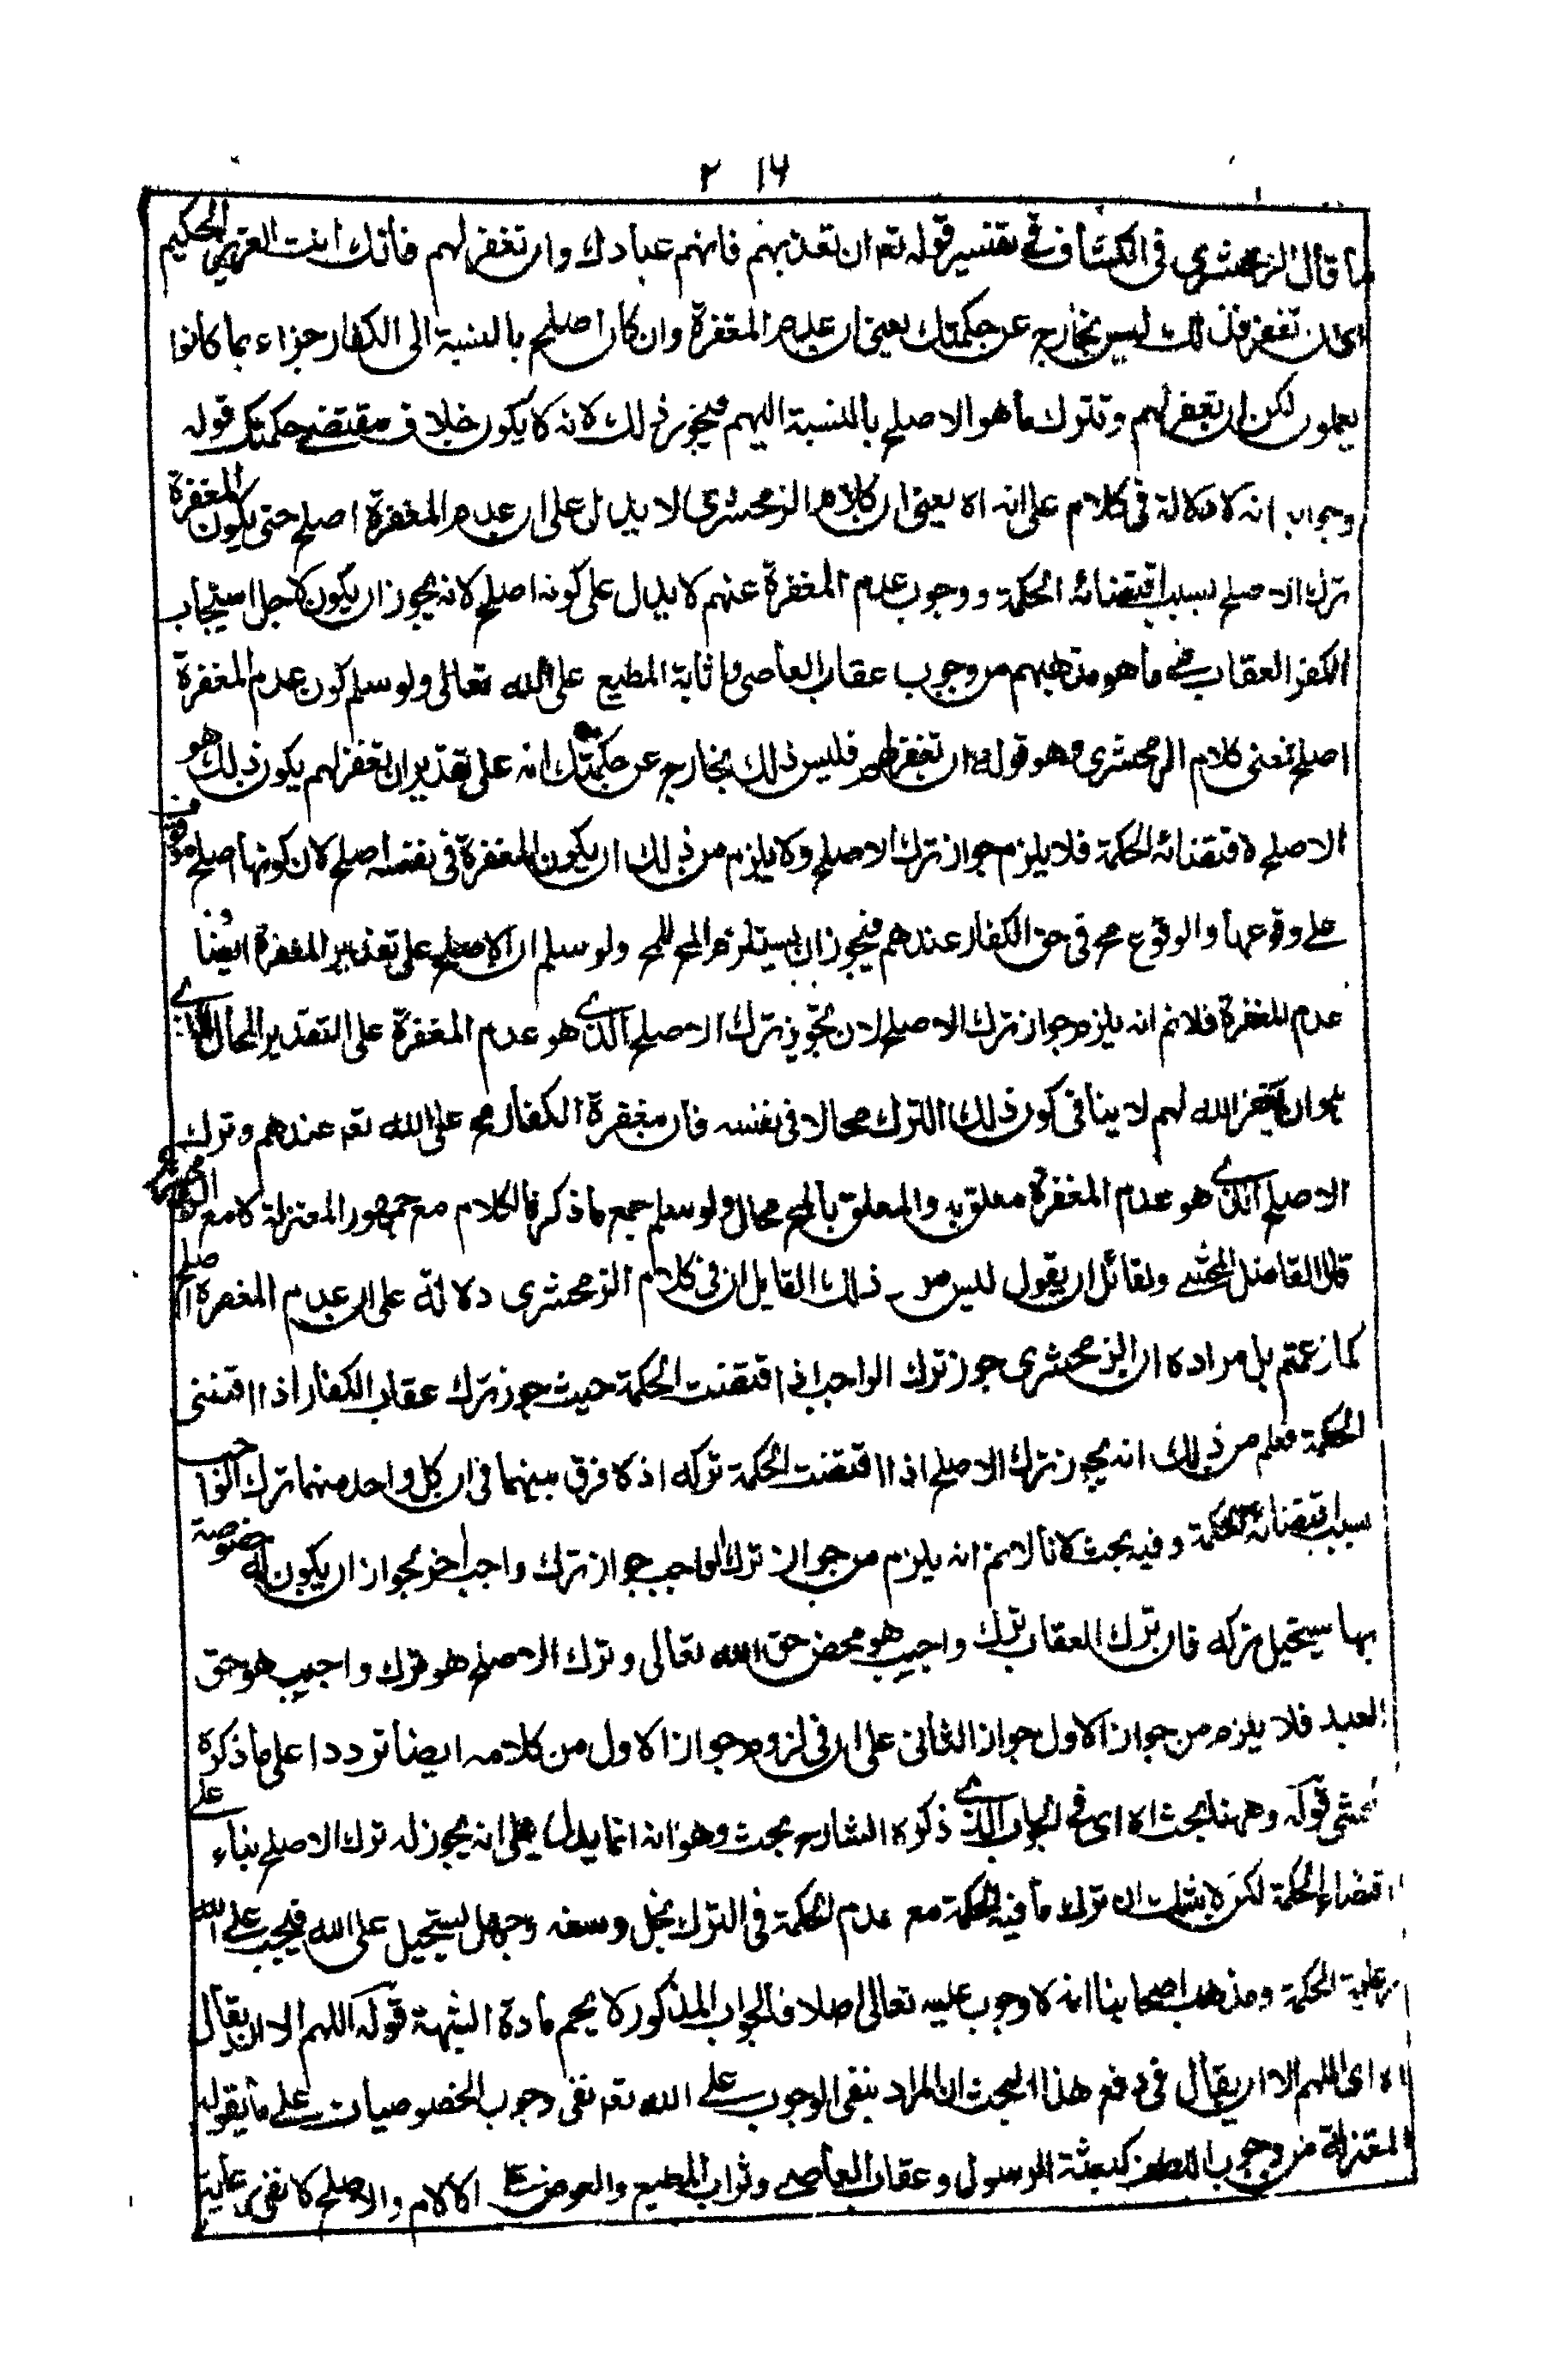 ٢١٦
ما قال الزمخشرى فى الكشاف فى تفسير قوله تع ان تعذبهم فانهم عبادك وان تغفر لهم فانك انت العزيز الحكيم
اى ان تغفر فذلك ليس بخارج عن حكمتك يعنى ان عدم المغفرة وان كان اصلح بالنسبة الى الكفار جزاء بما كانوا
يعملون لكن ان تغفر لهم وتترك ما هو الاصلح بالنسبة اليهم فيجوز ذلك لانه لا يكون خلاف مقتضى حكمتك قوله
وجوابه انه لا دلالة فى كلام على انه اه يعنى ان كلام الزمخشرى لا يدل على ان عدم المغفرة اصلح حتى يكون المغفرة
ترك الاصلح بسبب اقتضائه الحكمة ووجوب عدم المغفرة عنهم لا يدل على كونه اصلح لانه يجوز ان يكون لاجل استيجاب
الكفر العقاب على ما هو مذهبهم من وجوب عقاب العاصى واثابة المطيع على الله تعالى ولو سلم كون عدم المغفرة
اصلح فمعنى كلام الزمخشرى وهو قوله ان تغفر لهم فليس ذلك بخارج عن حكمتك انه على تقدير ان تغفر لهم يكون ذلك هو
الاصلح لاقتضائه الحكمة فلا يلزم جواز ترك الاصلح ولا يلزم من ذلك ان يكون المغفرة فى نفسه اصلح لان كونها اصلح موقوف
على وقوعها والوقوع مح فى حق الكفار عندهم فيجوز ان يستلزم المح المح ولو سلم ان الاصلح على تقدير المغفرة ايضا
عدم المغفرة فلانم انه يلزم جواز ترك الاصلح لان تجويز ترك الاصلح الذى هو عدم المغفرة على التقدير المحال الذى
هو ان يغفر الله لهم لا ينافى كون ذلك الترك محالا فى نفسه فان مغفرة الكفار مح على الله تع عندهم وترك
الاصلح الذى هو عدم المغفرة معلق به والمعلق بالمح محال ولو سلم جميع ما ذكر فالكلام مع جمهور المعتزلة لا مع الزمخشرى
قال الفاضل المحشى ولقائل ان يقول ليس من ذلك القايل ان فى كلام الزمخشرى دلالة على ان عدم المغفرة اصلح
كما زعمتم بل مراده ان الزمخشرى جوز ترك الواجب اذا اقتضت الحكمة حيث جوز ترك عقاب الكفار اذا اقتضى
الحكمة فعلم من ذلك انه يجوز ترك الاصلح اذا اقتضت الحكمة تركه اذ لا فرق بينهما فى ان كل واحد منهما ترك الواجب
بسبب اقتضائه الحكمة وفيه بحث لانا لانم انه يلزم من جواز ترك الواجب جواز ترك واجب اخر لجواز ان يكون له خصوصة
بها يستحيل تركه فان ترك العقاب ترك واجب هو محض حق الله تعالى وترك الاصلح هو ترك واجب هو حق
العبد فلا يلزم من جواز الاول جواز الثانى على ان فى لزوم جواز الاول من كلامه ايضا ترددا على ما ذكره
المحشى قوله وههنا بحث اه اى فى الجواب الذى ذكره الشارح بحث وهو انه انما يدل على انه يجوز له ترك الاصلح بناء على
اقتضاء الحكمة لكن لا شك ان ترك ما فيه الحكمة مع عدم الحكمة فى الترك بخل وسفه وجهل يستحيل على الله فيجب على الله
رعاية الحكمة ومذهب اصحابنا انه لا وجوب عليه تعالى اصلا فالجواب المذكور لا يحسم مادة الشبهة قوله اللهم الا ان يقال
اه اى اللهم الا ان يقال فى دفع هذا البحث ان المراد بنفى الوجوب على الله تع نفى وجوب الخصوصيات على ما يقوله
المعتزلة من وجوب اللطف كبعثة الرسول وعقاب العاصى وثواب المطيع والعوض على الالام والاصلح لا نفى رعاية